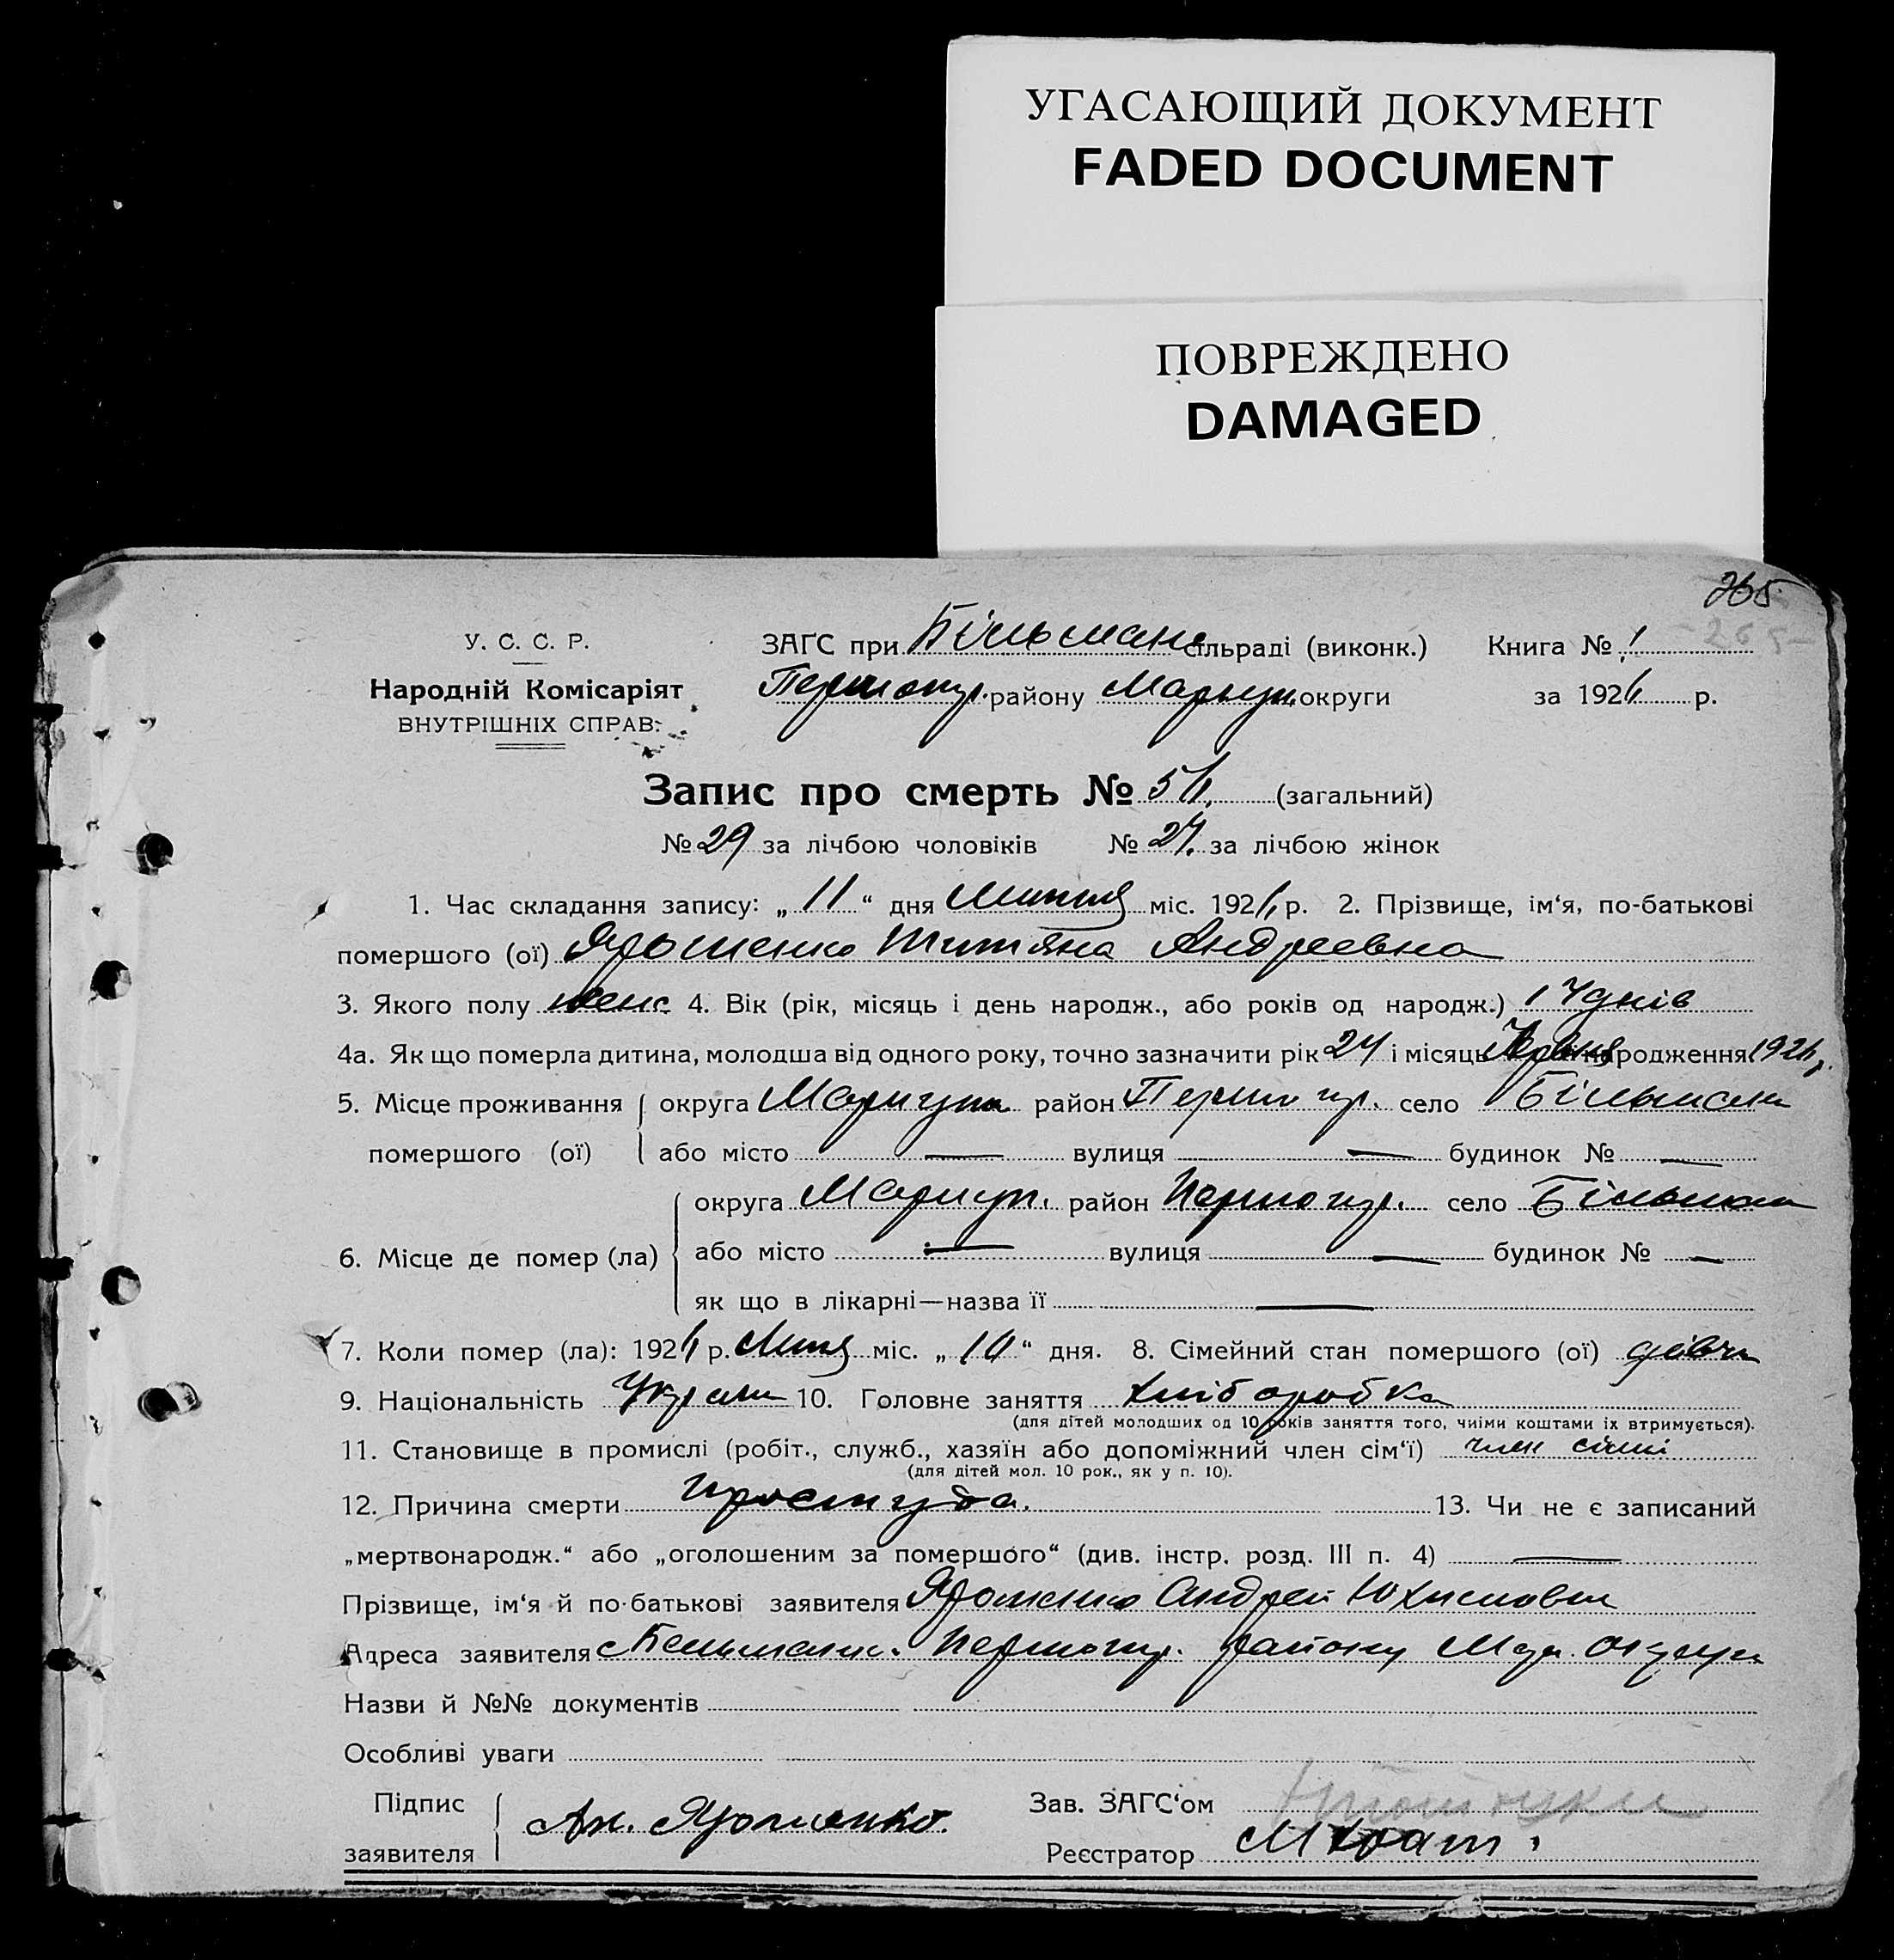 УГАСАЮЩИЙ ДОКУМЕНТ
FADED DOCUMENT
ПОВРЕЖДЕНО
DAMAGED
265
У. С. С. Р.
ЗАГС при Більман сільраді (виконк.) Книга № 1
-265-
Народній Комісаріят
Першотр. району Маріуп. округи за 192 р.
ВНУТРІШНІХ СПРАВ.
Запис про смерть № (загальний)
№ 29 за лічбою чоловіків № за лічбою жінок
1. Час складання запису: „11“ дня Липня міс. 192 р. 2. Прізвище, ім‘я, по-батькові
помершого (ої) Ярошенко Титяна Андреевна
3. Якого полу женс 4. Вік (рік, місяць і день народж., або років од народж.) днів
4а. Як що померла дитина, молодша від одного року, точно зазначити рік і місяць народження
5. Місце проживання округа Мариуп район село Більман
помершого (ої) або місто — вулиця — будинок № —
округа Мариуп. район село Більман
6. Місце де помер (ла) або місто — вулиця — будинок № —
як що в лікарні—назва її —
7. Коли помер (ла): 192 р. Липя міс. „10“ дня. 8. Сімейний стан помершого (ої)
9. Національність Украин 10. Головне заняття хліборобка
(для дітей молодших од 10 років заняття того, чиїми коштами їх втримується).
11. Становище в промислі (робіт., служб., хазяїн або допоміжний член сім‘ї) член сімі
(для дітей мол. 10 рок., як у п. 10).
12. Причина смерти простуда. 13. Чи не є записаний
„мертвонародж.“ або „оголошеним за помершого“ (див. інстр. розд. III п. 4) —
Прізвище, ім‘я й по-батькові заявителя Ярошенко Андрей Юхимович
Адреса заявителя с району
Назви й №№ документів
Особливі уваги
Підпис
заявителя Ан. Ярошенко.
Зав. ЗАГС‘ом
Реєстратор